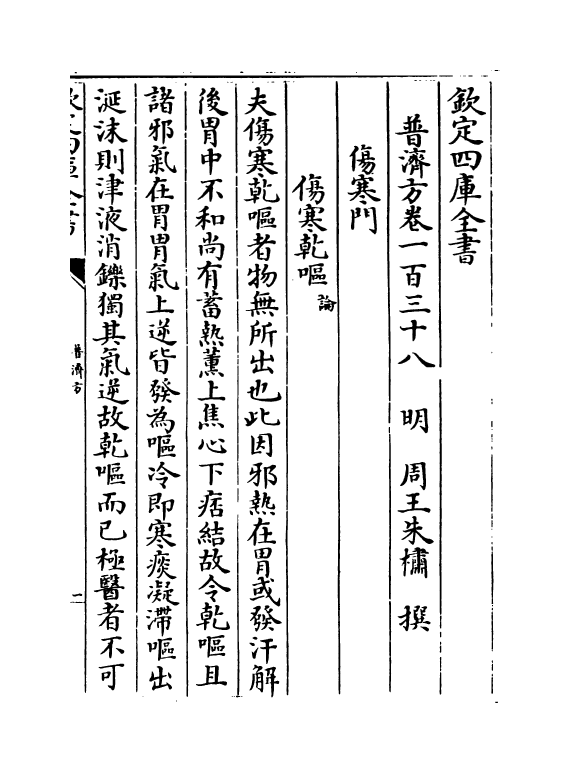 欽定四庫全書
普濟方卷一百三十八 明 周王朱橚 撰
傷寒門
傷寒乾嘔論
夫傷寒乾嘔者物無所出也此因邪熱在胃或發汗解
後胃中不和尚有蓄熱薰上焦心下痞結故令乾嘔且
諸邪氣在胃胃氣上逆皆發為嘔冷即寒痰凝滯嘔出
涎沫則津液消鑠獨其氣逆故乾嘔而已極醫者不可
欽定四庫全書
普濟方
二